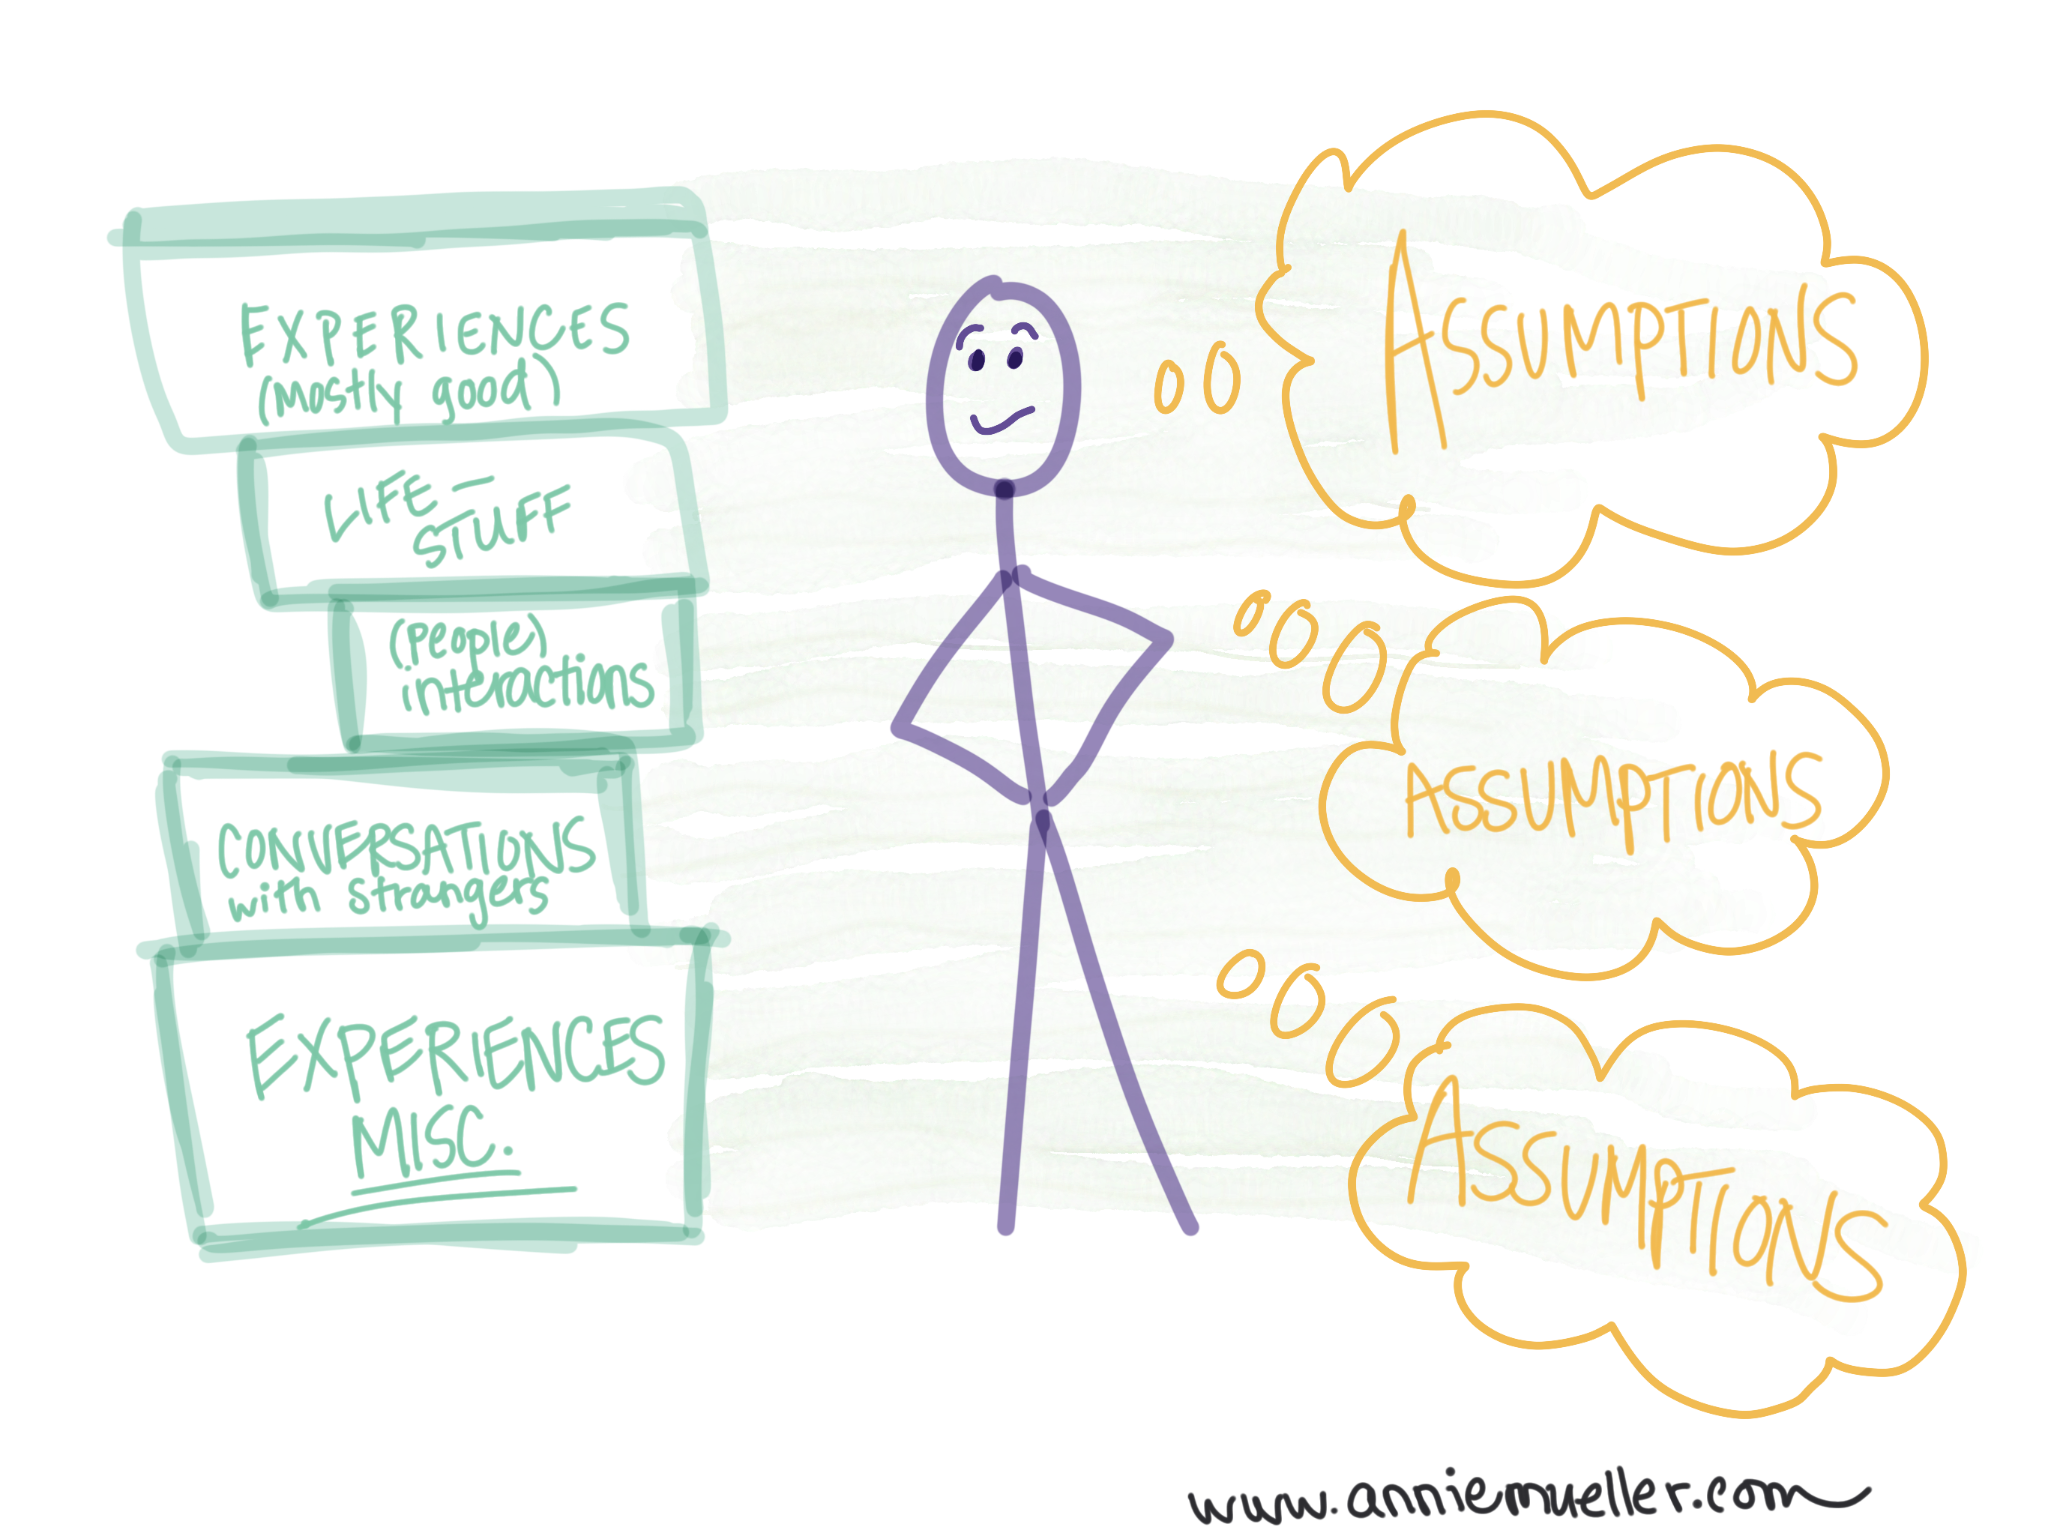 EXPERIENCES
(mostly good)
LIFE-
STUFF
(people)
interactions
CONVERSATIONS
with strangers
EXPERIENCES
MISC.
ASSUMPTIONS
ASSUMPTIONS
ASSUMPTIONS
www.anniemueller.com